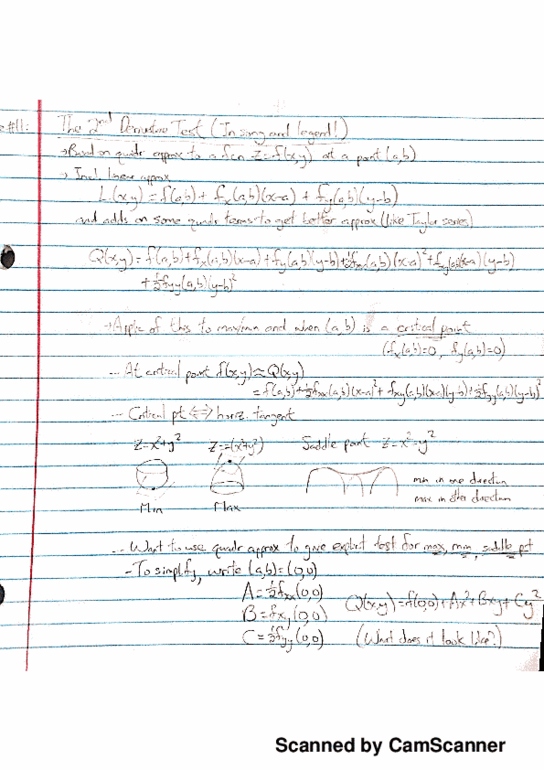 #11:
The 2nd Derivative Test (In song and legend!)
→ Based on quadr approx to a fcn z=f(x,y) at a point (a,b)
→ Incl. linear approx
L(x,y) = f(a,b) + fx(a,b)(x-a) + fy(a,b)(y-b)
and adds on some quadr terms to get better approx (like Taylor series)
Q(x,y) = f(a,b) + fx(a,b)(x-a) + fy(a,b)(y-b) + ½fxx(a,b)(x-a)² + fxy(a,b)(x-a)(y-b)
+ ½fyy(a,b)(y-b)²
→ Applic of this to max/min and when (a,b) is a critical point
(fx(a,b)=0, fy(a,b)=0)
... At critical point f(x,y) ≈ Q(x,y)
= f(a,b) + ½fxx(a,b)(x-a)² + fxy(a,b)(x-a)(y-b) + ½fyy(a,b)(y-b)²
... Critical pt ⟺ horiz. tangent
z=x²+y² z=-(x²+y²) Saddle point z=x²-y²
min in one direction
max in other direction
Min Max
... Want to use quadr approx to give explicit test for max, min, saddle pt
- To simplify, write (a,b)=(0,0)
A = ½fxx(0,0)
B = fxy(0,0) Q(x,y) = f(0,0) + Ax² + Bxy + Cy²
C = ½fyy(0,0) (What does it look like?)
Scanned by CamScanner